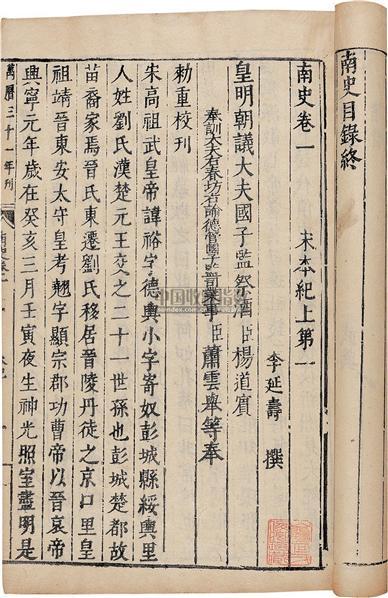 南史目錄終
南史卷一
宋本紀上第一
李延壽 撰
皇明朝議大夫國子監祭酒臣楊道賓
奉訓大夫右春坊右諭德管國子監司業事臣蕭雲舉等奉
勑重校刊
宋高祖武皇帝諱裕字德輿小字寄奴彭城縣綏輿里
人姓劉氏漢楚元王交之二十一世孫也彭城楚都故
苗裔家焉晉氏東遷劉氏移居晉陵丹徒之京口里皇
祖靖晉東安太守皇考翹字顯宗郡功曹帝以晉哀帝
興寧元年歲在癸亥三月壬寅夜生神光照室盡明是
萬曆三十一年刊